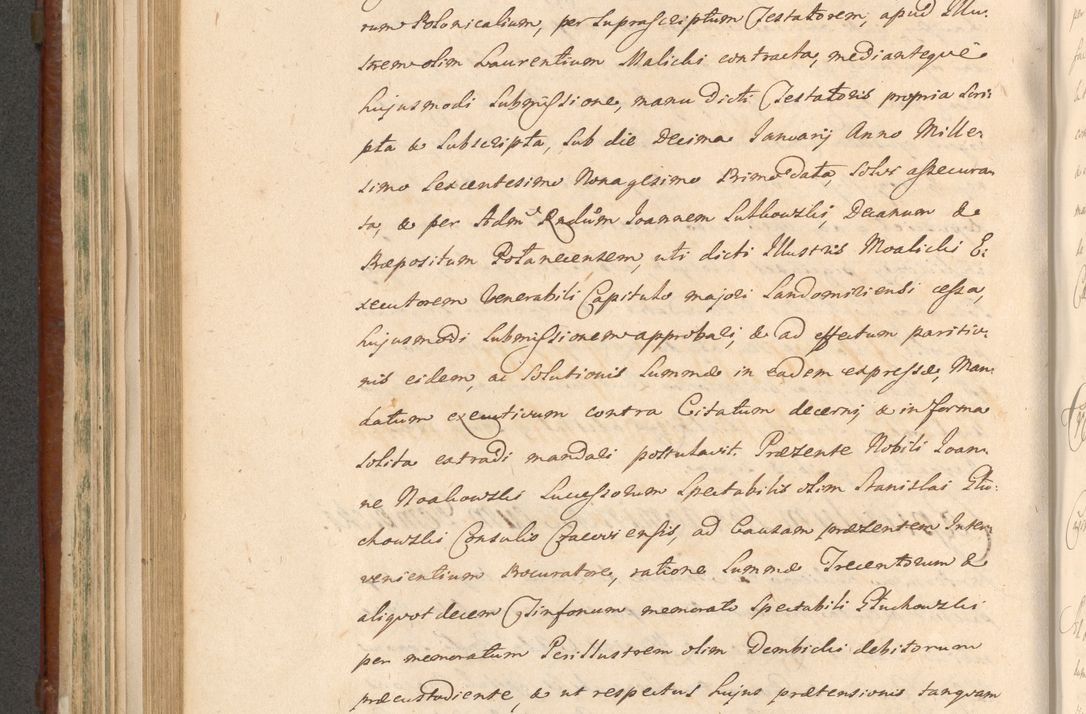 rum Polonicalium, per Suprascriptum Testatorem, apud Illu-
strem olim Laurentium Malicki contracta, medianteque
hujusmodi Submissione, manu dicti Testatoris propria Scri-
pta & Subscripta, Sub die Decima Januarij Anno Mille-
simo Sexcentesimo Nonagesimo Primo data, Solvi assecura-
ta, & per Adm. Rndum Joannem Lutkowski, Decanum &
Præpositum Połanecensem, uti dicti Illustris Moalicki E-
xecutorem Venerabili Capitulo majori Sandomiriensi cessa,
hujusmodi Submissionem approbari, & ad effectum paritio-
nis eidem, ac Solutionis Summæ in eadem expressæ, Man-
datum executivum contra Citatum decerni, & in forma
Solita extradi mandari postulavit. Præsente Nobili Joan-
ne Noakowski Successorum Spectabilis olim Stanislai Głu-
chowski Consulis Cracoviensis, ad Causam præsentem Inter-
venientium Procuratore, ratione Summæ Trecentorum &
aliquot decem Tinfonum memorato Spectabili Głuchowski
per memoratum Perillustrem olim Dembicki debitorum
præcustodiente, & ut respectus hujus prætensionis tanquam